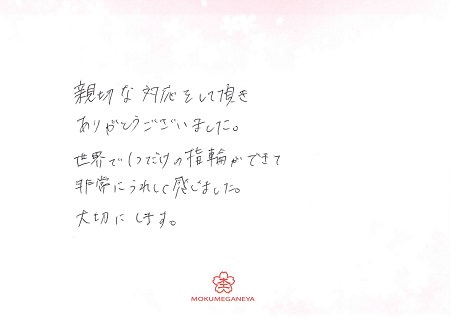 親切な対応をして頂き
ありがとうございました。
世界で1つだけの指輪ができて
非常にうれしく感じました。
大切にします。
MOKUMEGANEYA